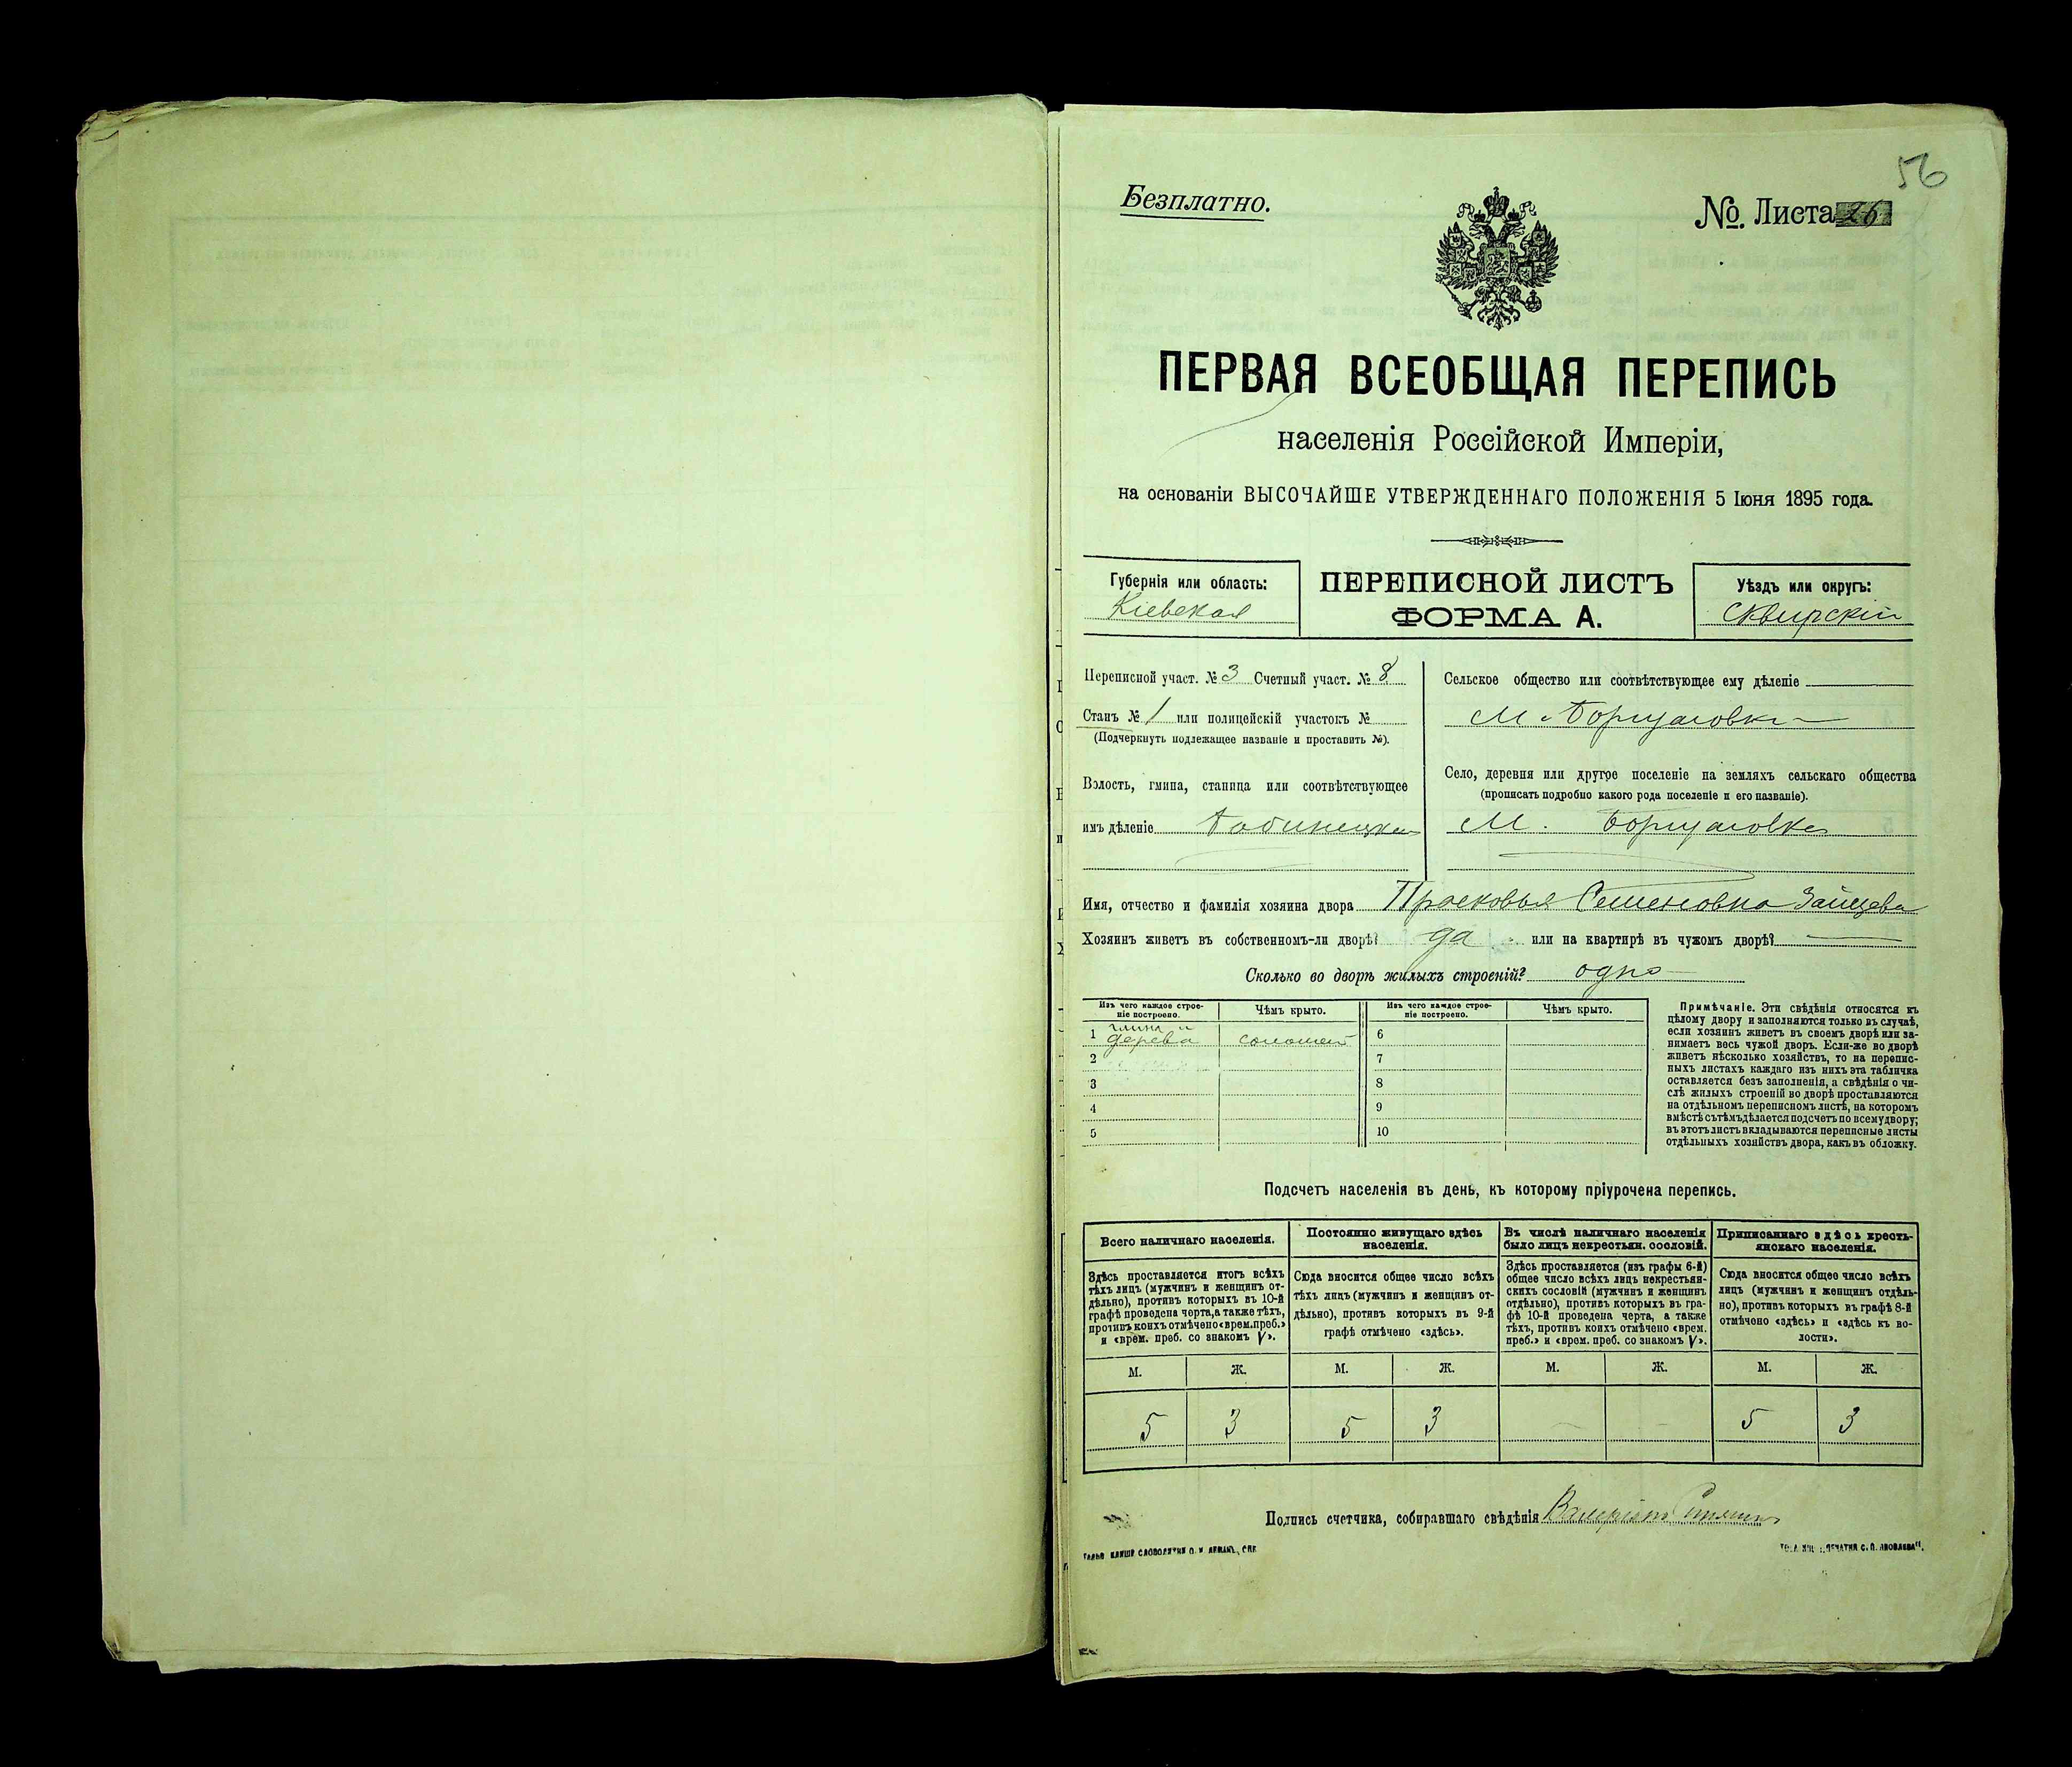 56
Безплатно.
№. Листа 26
ПЕРВАЯ ВСЕОБЩАЯ ПЕРЕПИСЬ
населенія Россійской Имперіи,
на основаніи ВЫСОЧАЙШЕ УТВЕРЖДЕННАГО ПОЛОЖЕНІЯ 5 Іюня 1895 года.
Губернія или область:
Кіевская
ПЕРЕПИСНОЙ ЛИСТЪ
ФОРМА А.
Уѣздъ или округъ:
Сквирскій
Переписной участ. № 3 Счетный участ. № 8
Станъ № 1 или полицейскій участокъ №
(Подчеркнуть подлежащее названіе и проставить №).
Волость, гмина, станица или соотвѣтствующее
имъ дѣленіе
Сельское общество или соотвѣтствующее ему дѣленіе
М. Борщаговка
Село, деревня или другое поселеніе на земляхъ сельскаго общества
(прописать подробно какого рода поселеніе и его названіе).
М. Борщаговка
Имя, отчество и фамилія хозяина двора Прасковья Семеновна Зайцева
Хозяинъ живетъ въ собственномъ-ли дворѣ? да или на квартирѣ въ чужомъ дворѣ? —
Сколько во дворѣ жилыхъ строеній? одно
Изъ чего каждое строе-
ніе построено.
Чѣмъ крыто.
Изъ чего каждое строе-
ніе построено.
Чѣмъ крыто.
1 глина и
дерева соломой
2
3
4
5
6
7
8
9
10
Примѣчаніе. Эти свѣдѣнія относятся къ
цѣлому двору и заполняются только въ случаѣ,
если хозяинъ живетъ въ своемъ дворѣ или за-
нимаетъ весь чужой дворъ. Если-же во дворѣ
живетъ нѣсколько хозяйствъ, то на перепис-
ныхъ листахъ каждаго изъ нихъ эта табличка
оставляется безъ заполненія, а свѣдѣнія о чи-
слѣ жилыхъ строеній во дворѣ проставляются
на отдѣльномъ переписномъ листѣ, на которомъ
вмѣстѣ съ тѣмъ дѣлается подсчетъ по всему двору;
въ этотъ листъ вкладываются переписные листы
отдѣльныхъ хозяйствъ двора, какъ въ обложку.
Подсчетъ населенія въ день, къ которому пріурочена перепись.
Всего наличнаго населенія.
Здѣсь проставляется итогъ всѣхъ
тѣхъ лицъ (мужчинъ и женщинъ от-
дѣльно), противъ которыхъ въ 10-й
графѣ проведена черта, а также тѣхъ,
противъ коихъ отмѣчено «врем. преб.»
и «врем. преб. со знакомъ V».
Постоянно живущаго здѣсь
населенія.
Сюда вносится общее число всѣхъ
тѣхъ лицъ (мужчинъ и женщинъ от-
дѣльно), противъ которыхъ въ 9-й
графѣ отмѣчено «здѣсь».
Въ числѣ наличнаго населенія
было лицъ некрестьян. сословій.
Здѣсь проставляется (изъ графы 6-й)
общее число всѣхъ лицъ некрестьян-
скихъ сословій (мужчинъ и женщинъ
отдѣльно), противъ которыхъ въ гра-
фѣ 10-й проведена черта, а также
тѣхъ, противъ коихъ отмѣчено «врем.
преб.» и «врем. преб. со знакомъ V».
Приписаннаго здѣсь кресть-
янскаго населенія.
Сюда вносится общее число всѣхъ
лицъ (мужчинъ и женщинъ отдѣль-
но), противъ которыхъ въ графѣ 8-й
отмѣчено «здѣсь» и «здѣсь къ во-
лости».
М. Ж. М. Ж. М. Ж. М. Ж.
5 3 5 3 — — 5 3
Подпись счетчика, собиравшаго свѣдѣнія